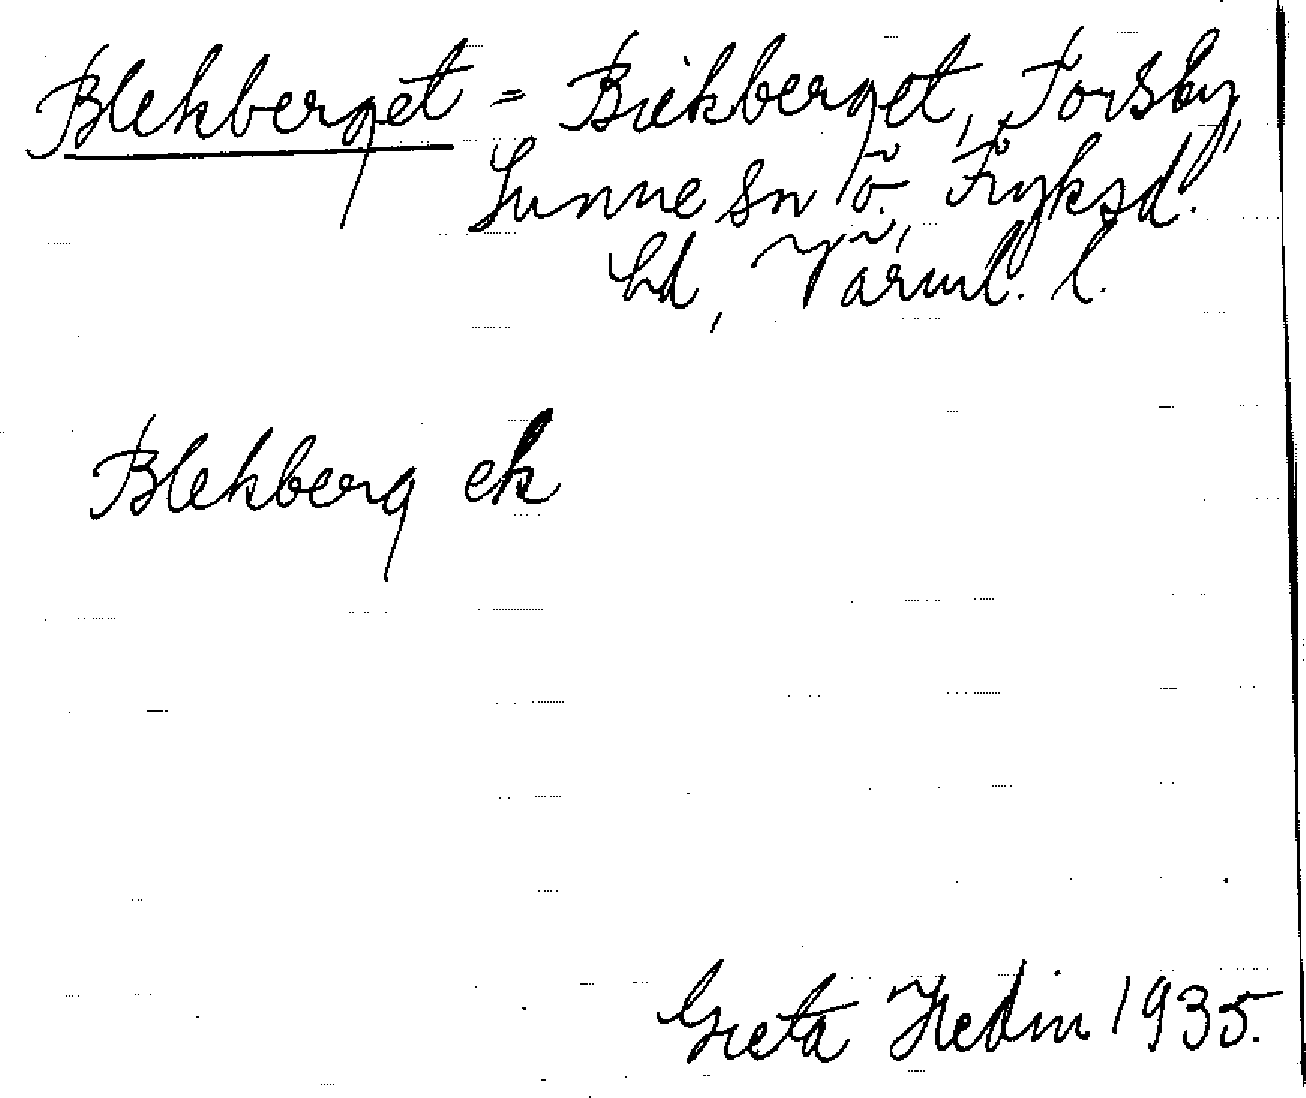 Blekberget = Birkberget, Torsby,
Sunne sn ö. Fryksd.
hd, Värml. l.
Blekberg ek
Greta Hedin 1935.